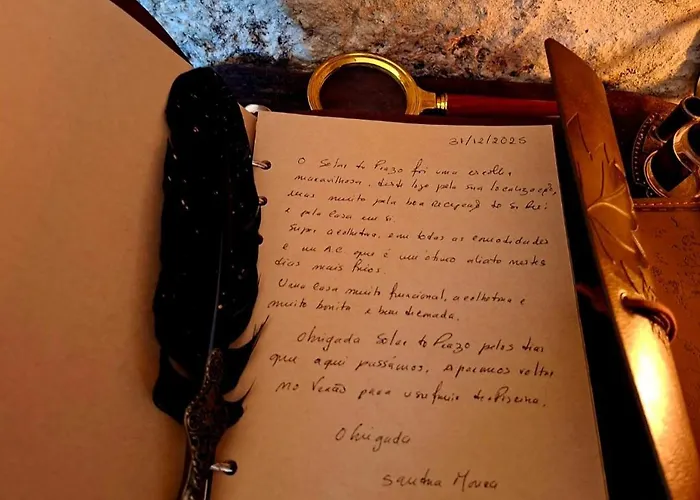 31/12/2025
O Solar do Prazo foi uma escolha
maravilhosa, desde logo pela sua localização,
mas muito pela boa recepção do Sr Rui
e pela casa em si.
Super acolhedora, com todas as comodidades
e um A.C. que é um ótimo aliado nestes
dias mais frios.
Uma casa muito funcional, acolhedora e
muito bonita e bem decorada.
Obrigada Solar do Prazo pelos dias
que aqui passámos. Esperamos voltar
no Verão para usufruir da Piscina.
Obrigada
Sandra Moura